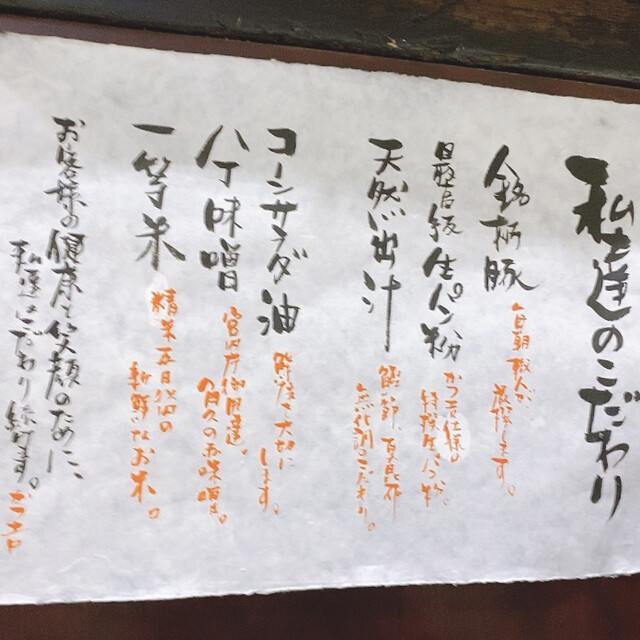 私達のこだわり
銘柄豚
毎朝職人が
します。
最高級生パン粉
かつ吉仕様の
特殊生パン粉。
天然出汁
鰹節、
無化調のこだわり。
コーンサラダ油
大切に
します。
八丁味噌
宮内庁御用達。
のお味噌。
一等米
精米五日以内の
新鮮なお米。
お客様の健康と笑顔のために、
私達はこだわり続けます。かつ吉